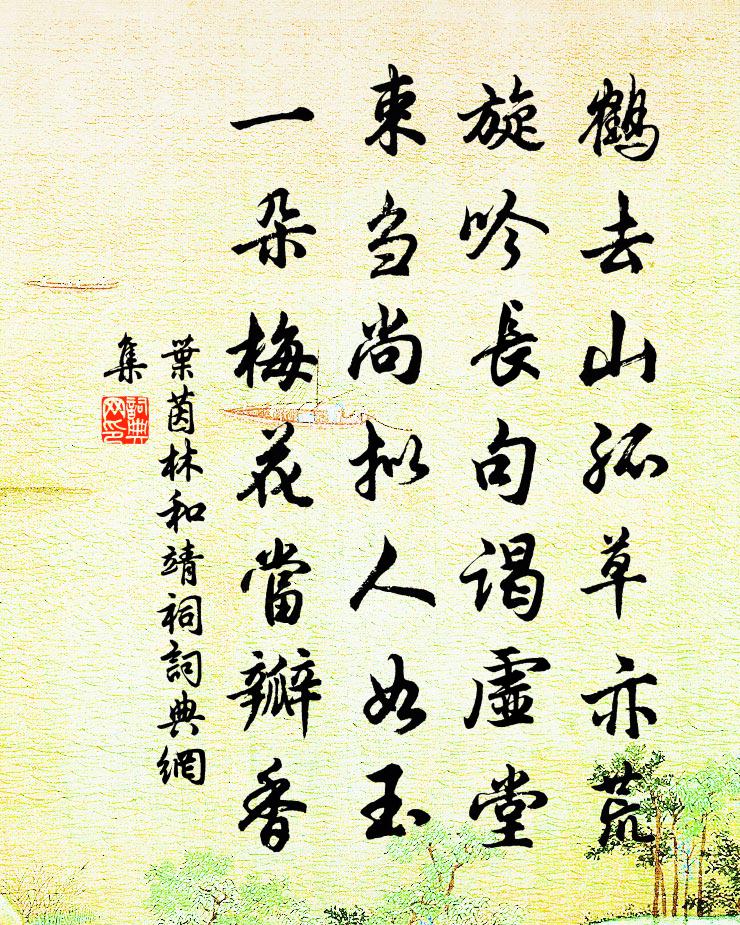 鶴去山孤草亦荒
旋吟長句謁虛堂
束芻尚擬人如玉
一朵梅花當瓣香
葉茵林和靖祠詞典網
集
詞典
网印